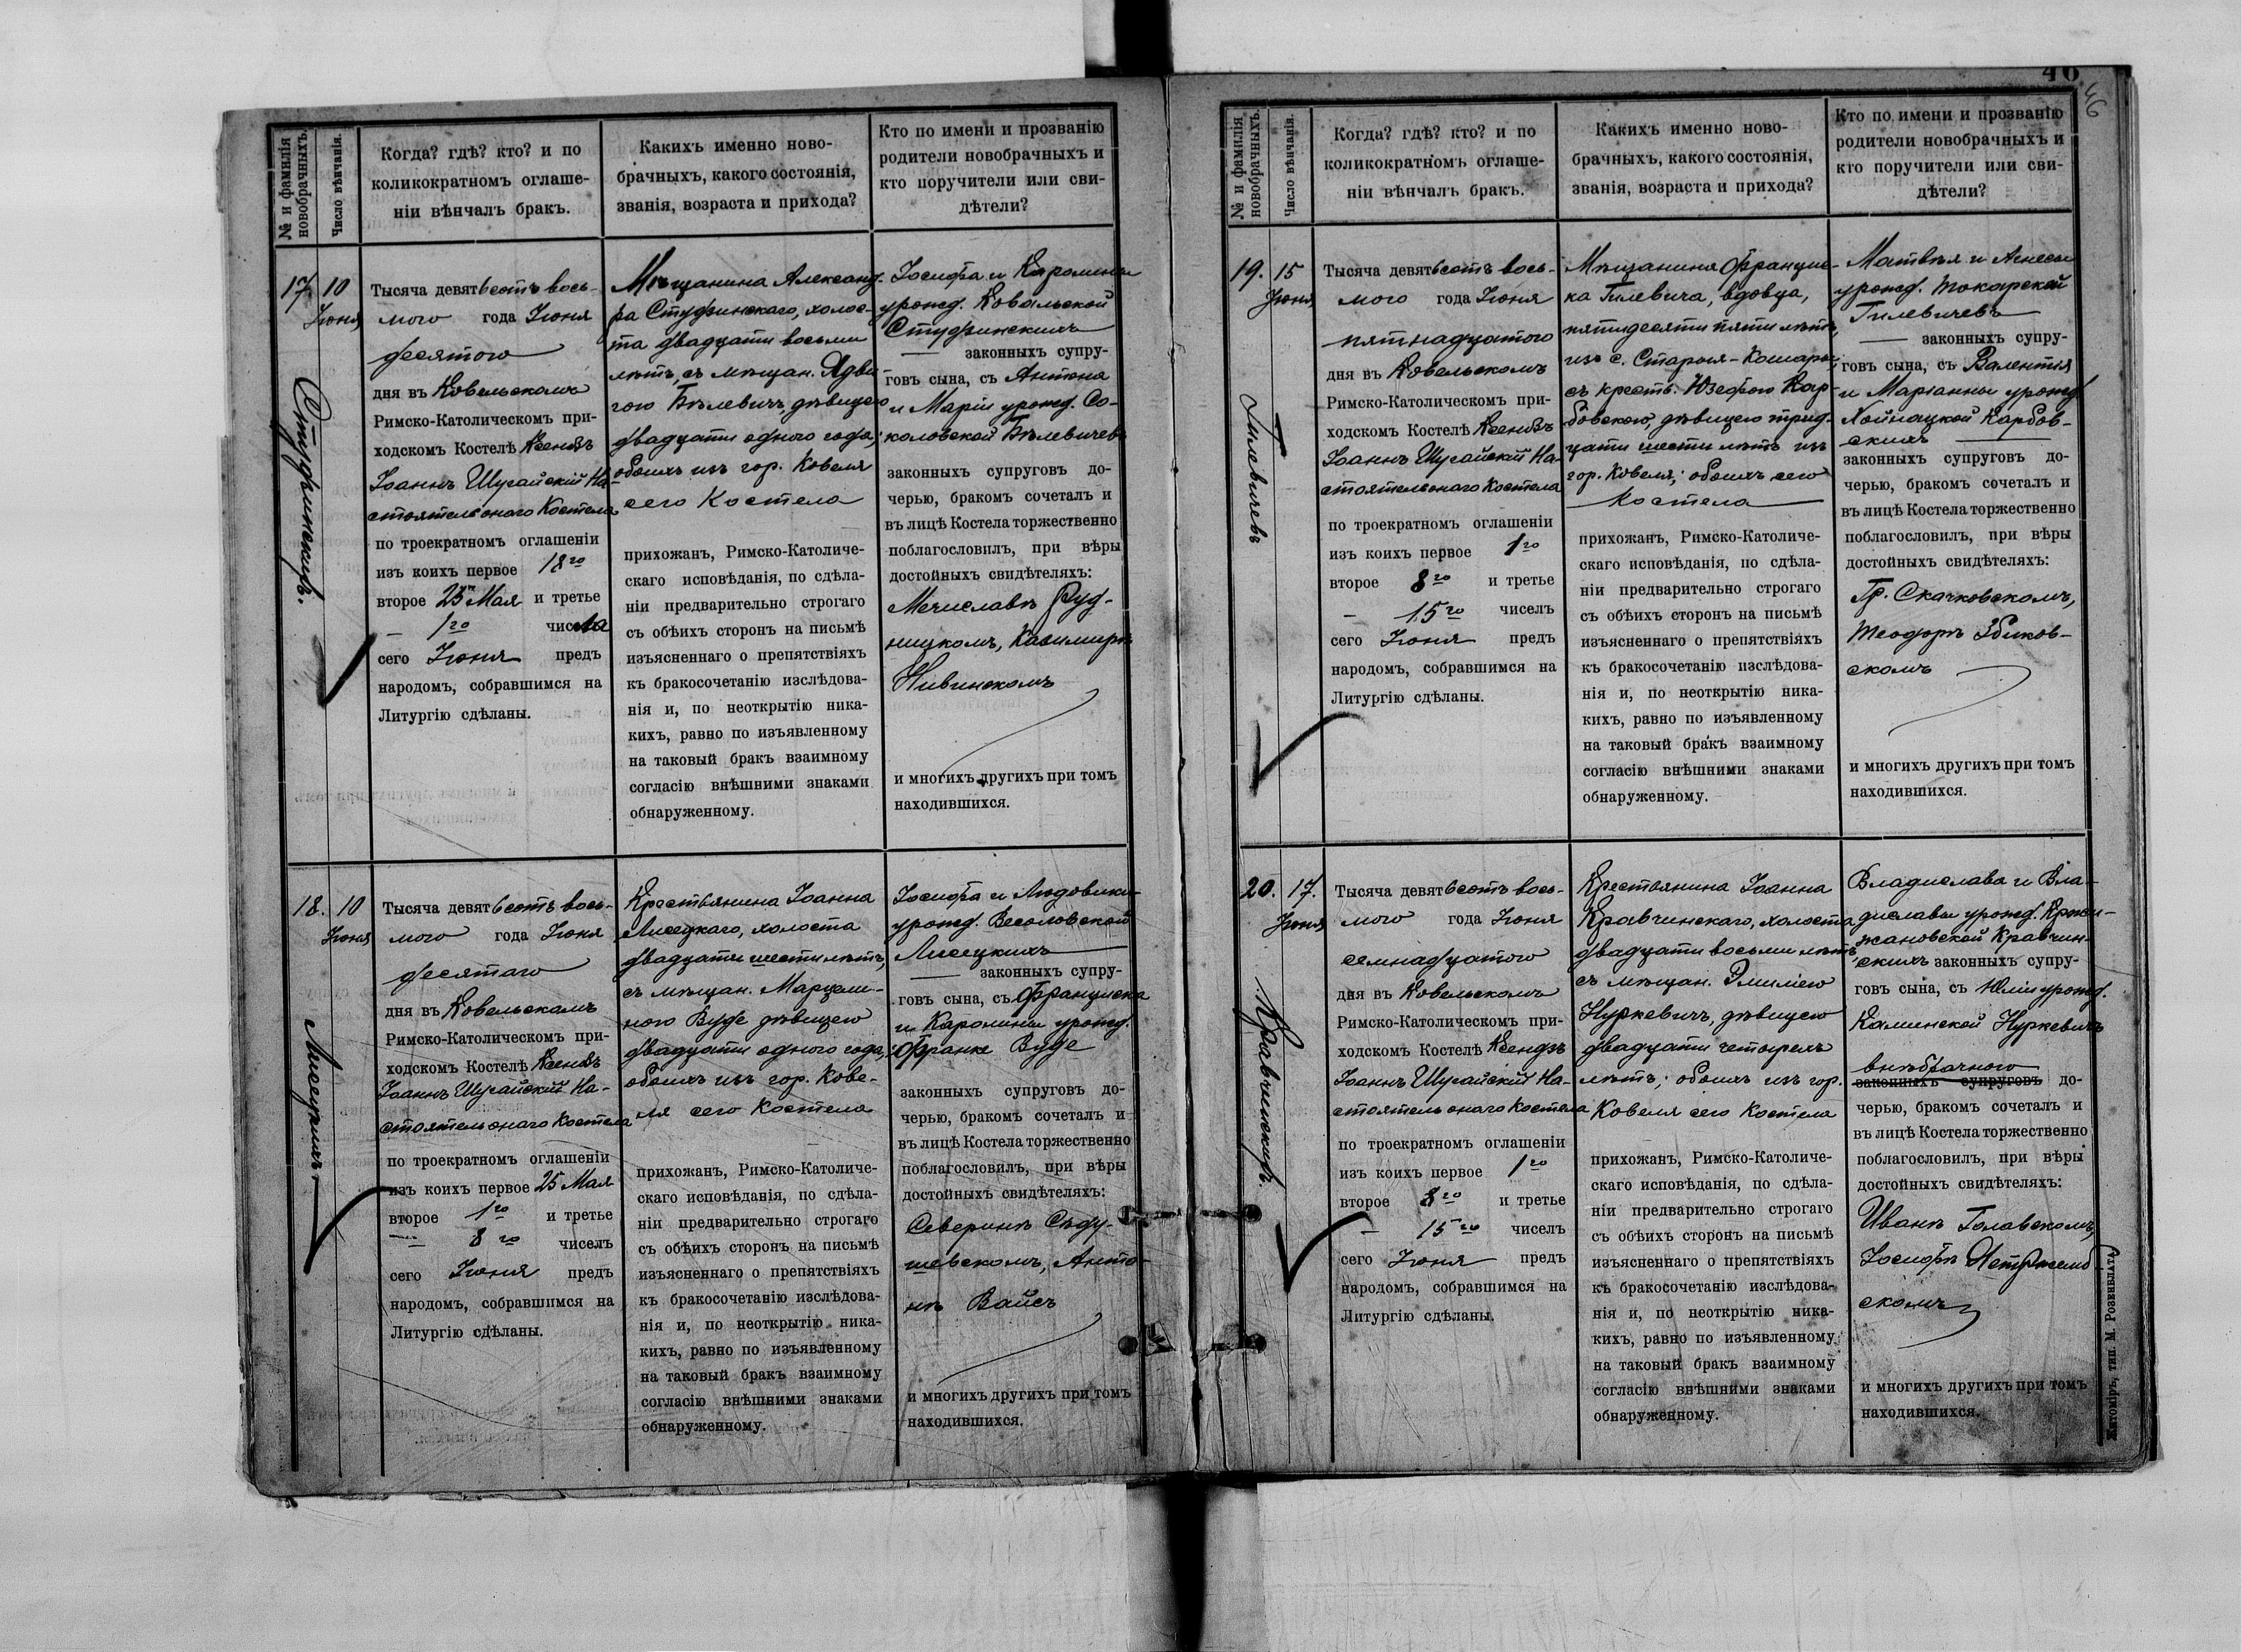 № и фамилія новобрачныхъ.
Число вѣнчанія.
Когда? гдѣ? кто? и по
коликократномъ оглаше-
ніи вѣнчалъ бракъ.
Какихъ именно ново-
брачныхъ, какого состоянія,
званія, возраста и прихода?
Кто по имени и прозванію
родители новобрачныхъ и
кто поручители или сви-
дѣтели?
17 10
Іюня
Студзинскихъ.
Тысяча девятьсотъ вось-
мого года Іюня
десятого
дня въ Ковельскомъ
Римско-Католическомъ при-
ходскомъ Костелѣ Ксендзъ
Іоаннъ Шугайскій На-
стоятель онаго Костела
по троекратномъ оглашеніи
изъ коихъ первое 18го
второе 25 Мая и третье
— 1го числа
сего Іюня предъ
народомъ, собравшимся на
Литургію сдѣланы.
Мѣщанина Александ-
ра Студзинскаго, холос-
та двадцати восьми
лѣтъ, съ мѣщан. Ядви-
гою Бѣлевичъ, дѣвицею
двадцати одного года;
обоихъ изъ гор. Ковеля
сего Костела
прихожанъ, Римско-Католиче-
скаго исповѣданія, по сдѣла-
ніи предварительно строгаго
съ обѣихъ сторонъ на письмѣ
изъясненнаго о препятствіяхъ
къ бракосочетанію изслѣдова-
нія и, по неоткрытію ника-
кихъ, равно по изъявленному
на таковый бракъ взаимному
согласію внѣшними знаками
обнаруженному.
Іосифа и Каролины
урожд. Ковальской
Студзинскихъ
— законныхъ супру-
говъ сына, съ Антона
и Маріи урожд. Со-
коловской Бѣлевичевъ
законныхъ супруговъ до-
черью, бракомъ сочеталъ и
въ лицѣ Костела торжественно
поблагословилъ, при вѣры
достойныхъ свидѣтеляхъ:
Мечиславѣ Руд-
ницкомъ, Казимирѣ
Нивинскомъ
и многихъ другихъ при томъ
находившихся.
18. 10
Іюня
Лисецкихъ
Тысяча девятьсотъ вось-
мого года Іюня
десятаго
дня въ Ковельскомъ
Римско-Католическомъ при-
ходскомъ Костелѣ Ксендзъ
Іоаннъ Шугайскій На-
стоятель онаго Костела
по троекратномъ оглашеніи
изъ коихъ первое 25 Мая
второе 1го и третье
— 8го чиселъ
сего Іюня предъ
народомъ, собравшимся на
Литургію сдѣланы.
Крестьянина Іоанна
Лисецкаго, холоста
двадцати шести лѣтъ,
съ мѣщан. Марцели-
ною Вуде дѣвицею
двадцати одного года,
обоихъ изъ гор. Кове-
ля сего Костела
прихожанъ, Римско-Католиче-
скаго исповѣданія, по сдѣла-
ніи предварительно строгаго
съ обѣихъ сторонъ на письмѣ
изъясненнаго о препятствіяхъ
къ бракосочетанію изслѣдова-
нія и, по неоткрытію ника-
кихъ, равно по изъявленному
на таковый бракъ взаимному
согласію внѣшними знаками
обнаруженному.
Іосифа и Людовики
урожд. Весоловской
Лисецкихъ
— законныхъ супру-
говъ сына, съ Франциска
и Каролины урожд.
Франке Вуде
законныхъ супруговъ до-
черью, бракомъ сочеталъ и
въ лицѣ Костела торжественно
поблагословилъ, при вѣры
достойныхъ свидѣтеляхъ:
Северинѣ Сѣду-
шевскомъ, Анто-
нѣ Вайсъ
и многихъ другихъ при томъ
находившихся.
46
46
№ и фамилія новобрачныхъ.
Число вѣнчанія.
Когда? гдѣ? кто? и по
коликократномъ оглаше-
ніи вѣнчалъ бракъ.
Какихъ именно ново-
брачныхъ, какого состоянія,
званія, возраста и прихода?
Кто по имени и прозванію
родители новобрачныхъ и
кто поручители или сви-
дѣтели?
19. 15
Іюня
Гилевичевъ
Тысяча девятьсотъ вось-
мого года Іюня
пятнадцатого
дня въ Ковельскомъ
Римско-Католическомъ при-
ходскомъ Костелѣ Ксендзъ
Іоаннъ Шугайскій На-
стоятель онаго Костела
по троекратномъ оглашеніи
изъ коихъ первое 1го
второе 8го и третье
— 15го чиселъ
сего Іюня предъ
народомъ, собравшимся на
Литургію сдѣланы.
Мѣщанина Францис-
ка Гилевича, вдовца,
пятидесяти пяти лѣтъ,
изъ с. Старыя-Кошары
съ крестъ. Юзефою Кар-
бовскою, дѣвицею трид-
цати шести лѣтъ изъ
гор. Ковеля; обоихъ сего
Костела
прихожанъ, Римско-Католиче-
скаго исповѣданія, по сдѣла-
ніи предварительно строгаго
съ обѣихъ сторонъ на письмѣ
изъясненнаго о препятствіяхъ
къ бракосочетанію изслѣдова-
нія и, по неоткрытію ника-
кихъ, равно по изъявленному
на таковый бракъ взаимному
согласію внѣшними знаками
обнаруженному.
Матвѣя и Агнесы
урожд. Токарской
Гилевичевъ
— законныхъ супру-
говъ сына, съ Валентія
и Маріанны урожд.
Хойнацкой Карбов-
скихъ
законныхъ супруговъ до-
черью, бракомъ сочеталъ и
въ лицѣ Костела торжественно
поблагословилъ, при вѣры
достойныхъ свидѣтеляхъ:
Гр. Скачковскомъ,
Теодорѣ Збиков-
скомъ
и многихъ другихъ при томъ
находившихся.
20. 17.
Іюня
Кравчинскихъ.
Тысяча девятьсотъ вось-
мого года Іюня
семнадцатого
дня въ Ковельскомъ
Римско-Католическомъ при-
ходскомъ Костелѣ Ксендзъ
Іоаннъ Шугайскій На-
стоятель онаго Костела
по троекратномъ оглашеніи
изъ коихъ первое 1го
второе 8го и третье
— 15го чиселъ
сего Іюня предъ
народомъ, собравшимся на
Литургію сдѣланы.
Крестьянина Іоанна
Кравчинскаго, холоста
двадцати восьми лѣтъ,
съ мѣщан. Эмиліею
Нуркевичъ, дѣвицею
двадцати четырехъ
лѣтъ; обоихъ изъ гор.
Ковеля сего Костела
прихожанъ, Римско-Католиче-
скаго исповѣданія, по сдѣла-
ніи предварительно строгаго
съ обѣихъ сторонъ на письмѣ
изъясненнаго о препятствіяхъ
къ бракосочетанію изслѣдова-
нія и, по неоткрытію ника-
кихъ, равно по изъявленному
на таковый бракъ взаимному
согласію внѣшними знаками
обнаруженному.
Владислава и Вла-
диславы урожд. Кржи-
жановской Кравчин-
скихъ законныхъ супру-
говъ сына, съ Юліи урожд.
Каминской Нуркевичъ
внѣбрачного
законныхъ супруговъ до-
черью, бракомъ сочеталъ и
въ лицѣ Костела торжественно
поблагословилъ, при вѣры
достойныхъ свидѣтеляхъ:
Иванѣ Голавскомъ,
Іосифѣ
скомъ
и многихъ другихъ при томъ
находившихся.
Житоміръ, тип. М. Розенблата